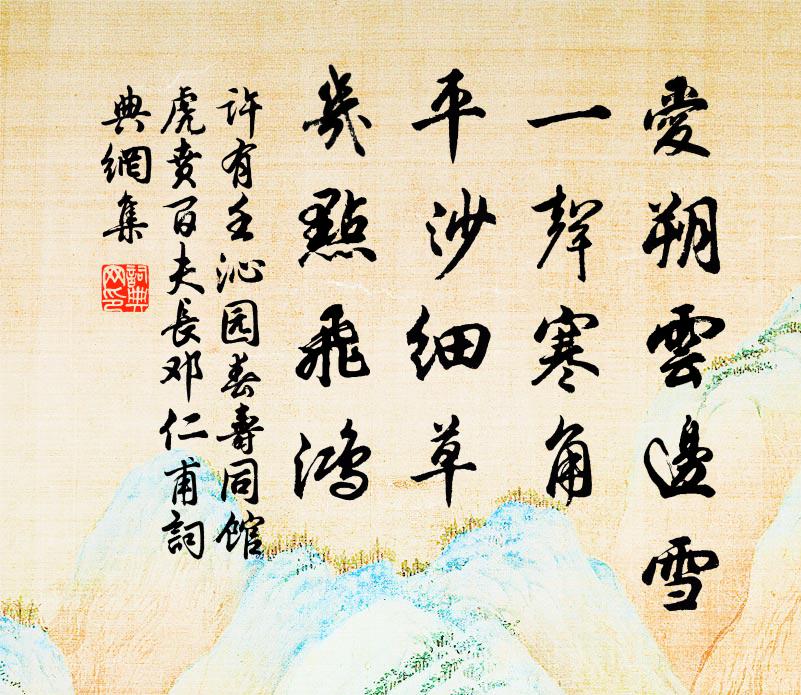 愛朔雲邊雪
一聲寒角
平沙細草
幾點飛鴻
许有壬沁园春壽同館
虎賁百夫长邓仁甫詞
典網集
詞典网印